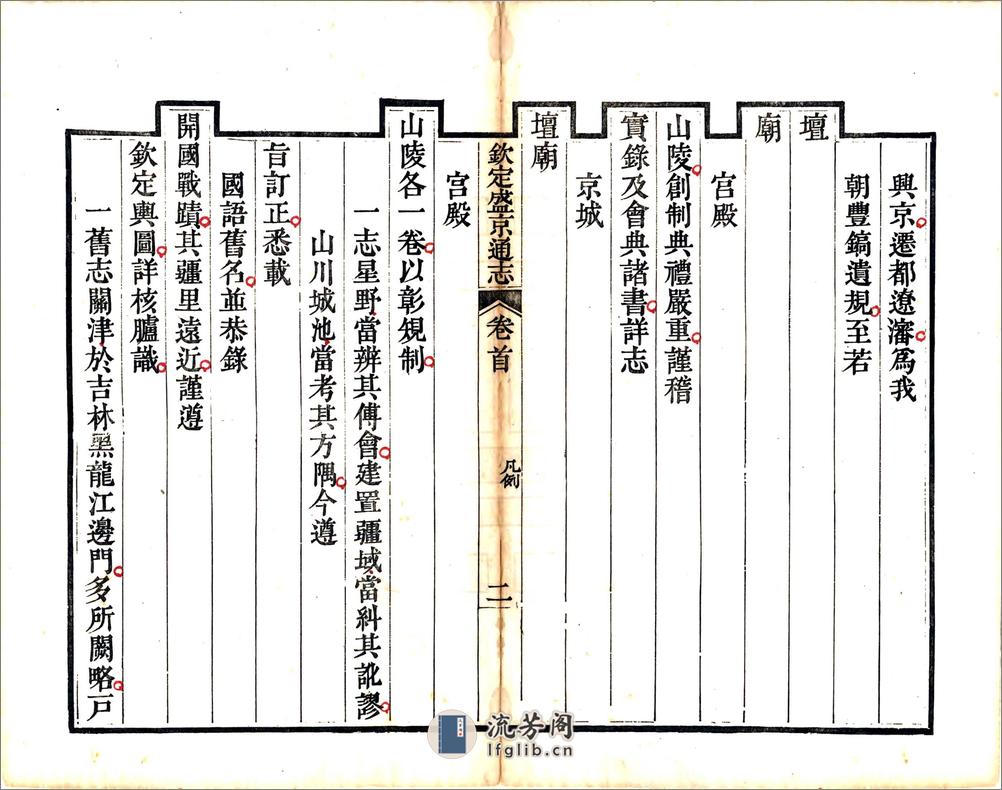 興京遷都遼瀋爲我
朝豐鎬遺規至若
壇
廟
宮殿
山陵創制典禮嚴重謹稽
實錄及會典諸書詳志
京城
壇廟
欽定盛京通志 卷首 凡例 二
宮殿
山陵各一卷以彰規制
一志星野當辨其傅會建置疆域當糾其訛謬
山川城池當考其方隅今遵
旨訂正悉載
國語舊名並恭錄
開國戰蹟其疆里遠近謹遵
欽定輿圖詳核臚識
一舊志關津於吉林黑龍江邊門多所闕略戸
流芳阁
lfglib.cn